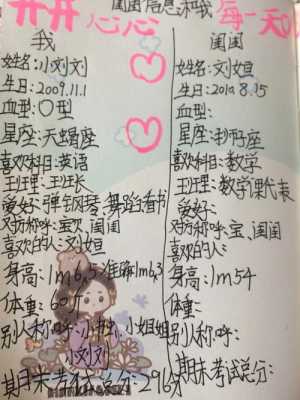 开开心心
闺闺信息和我
每一天
我
姓名:小刘刘
生日:2009.11.1
血型:O型
星座:天蝎座
喜欢科目:英语
班理:班长
爱好:弹钢琴、舞蹈看书
对方称呼:宝、闺闺
喜欢的人:刘姮
身高:1m6.5准确1m6.3
体重:60斤
别人称呼:小书虫、小姐姐
小刘刘
期末考试总分:296分
闺闺
姓名:刘姮
生日:2010.8.15
血型:
星座:狮子座
喜欢科目:数学
班理:数学课代表
爱好:
对方称呼:宝、闺闺
喜欢的人:
身高:1m54
体重:
别人称呼:
期末考试总分: